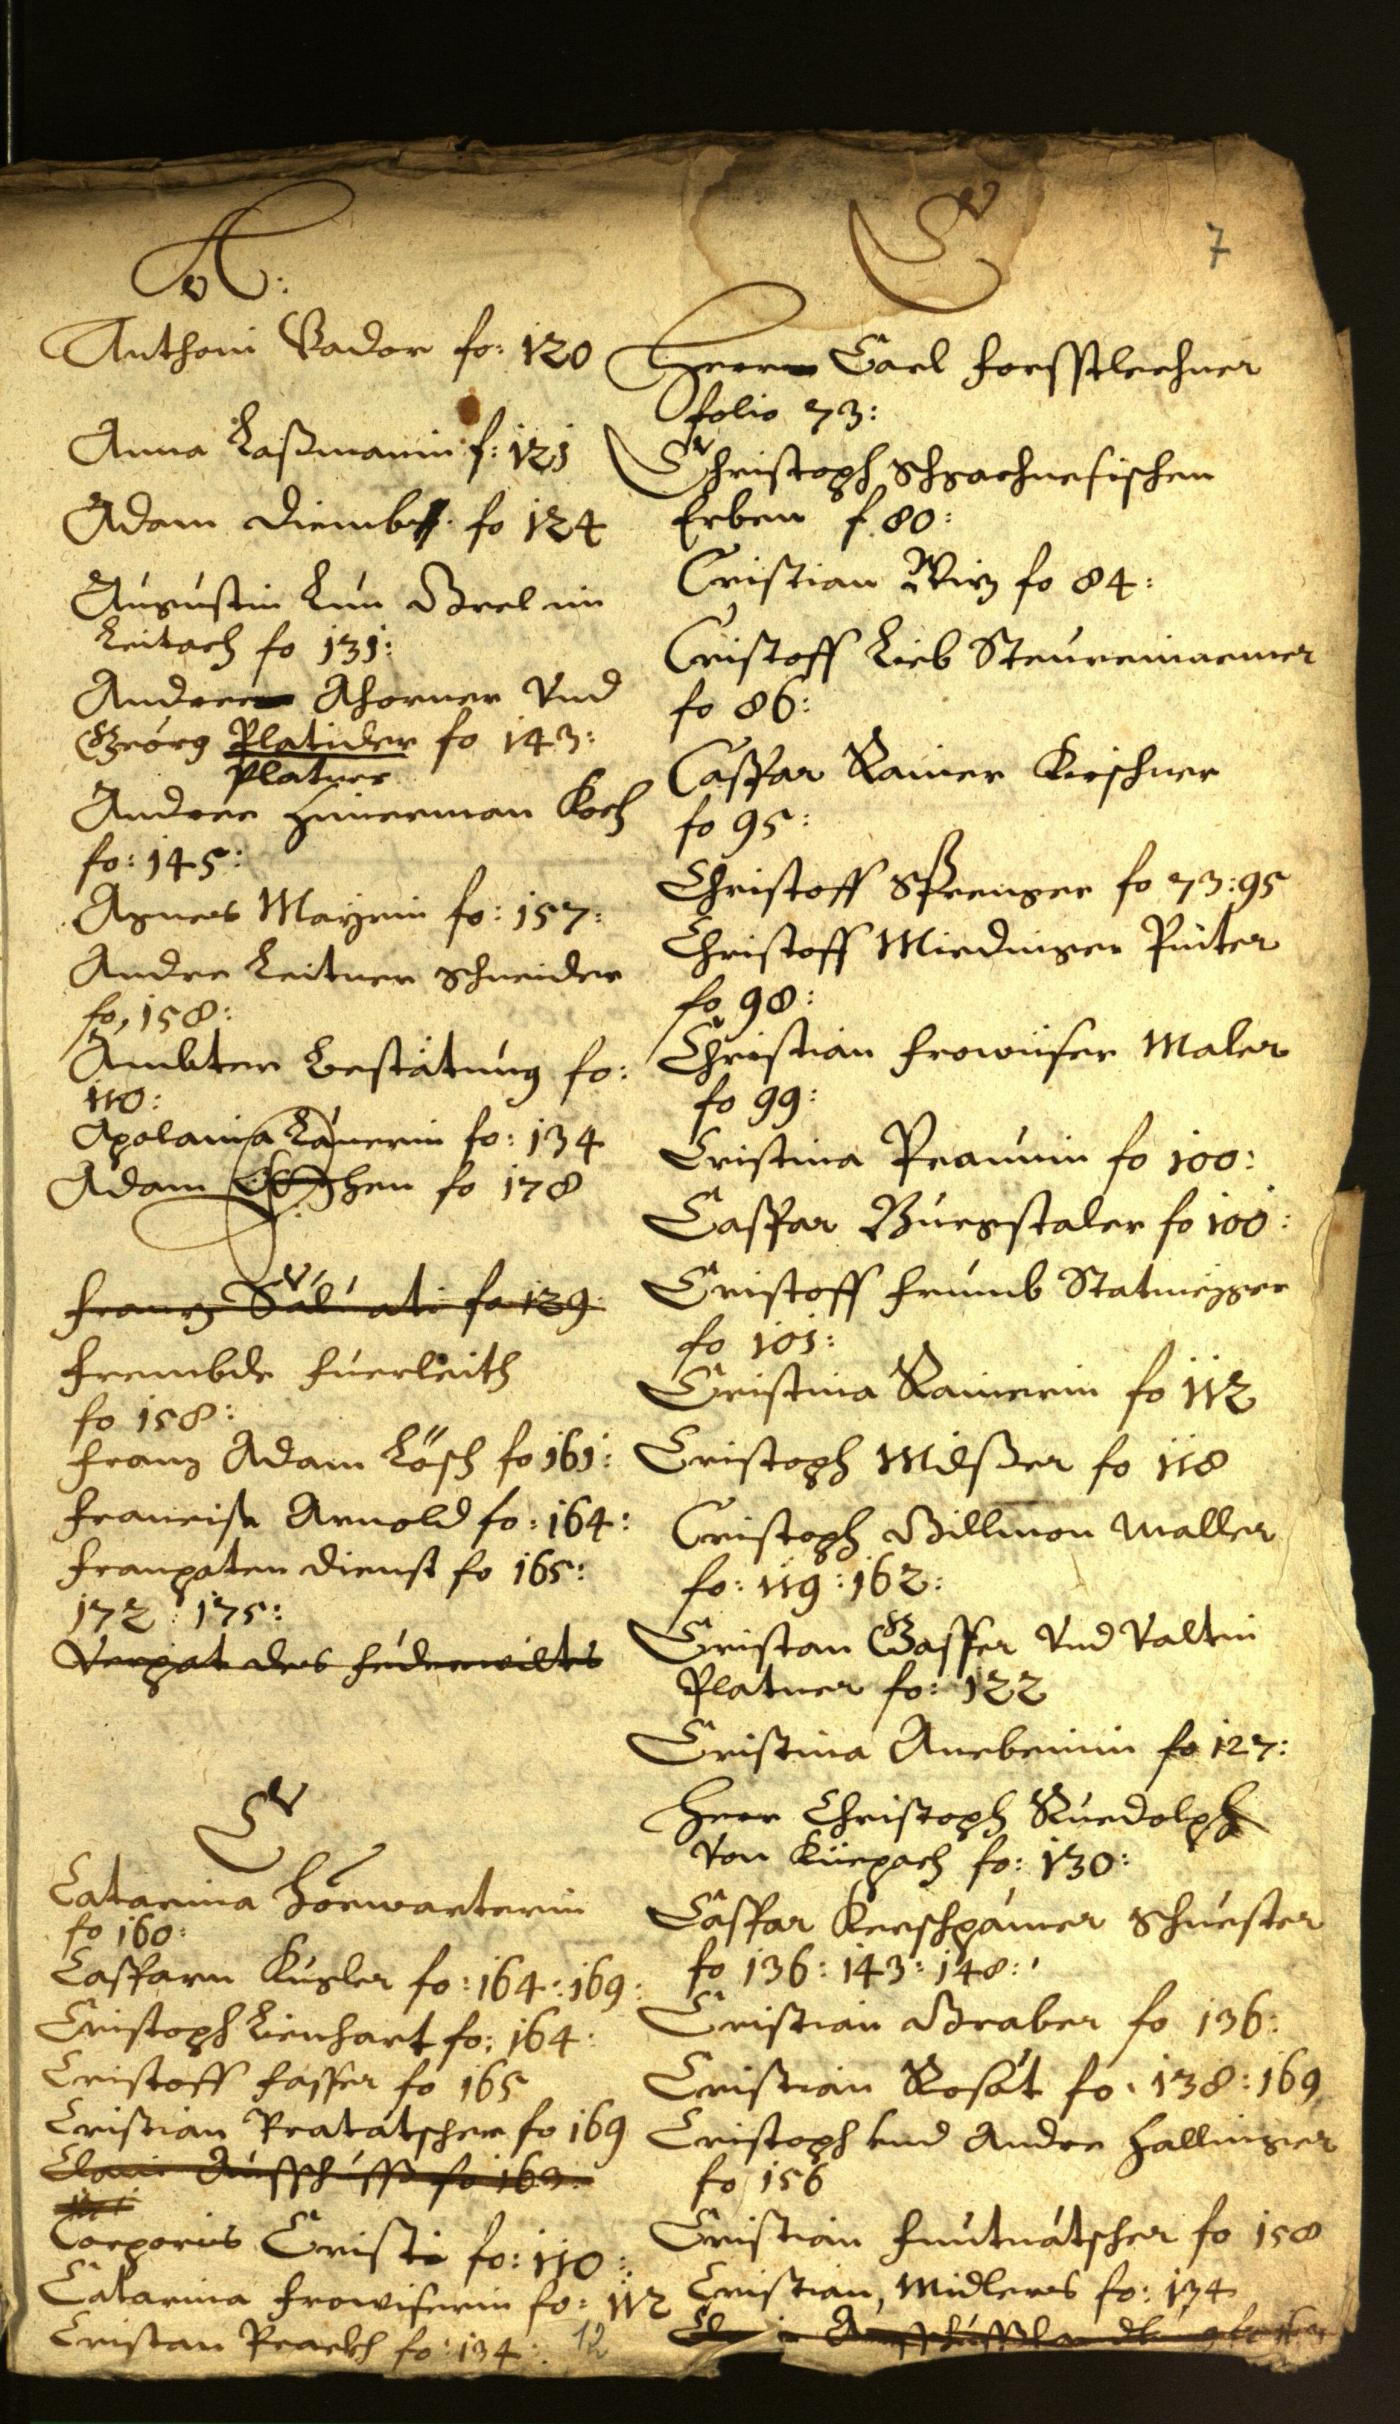 A:
Anthoni Bador fo: 120
Anna Laßmanin f: 121
Adam Diemb fo 124
Augustin Lun Brel im
Leitach fo 131:
Andree Ahorner Vnd
Georg Platider fo 143:
Platner
Andree Hinerman Koch
fo: 145:
Agnes Mayrin fo: 157:
Andre Leitner Schneider
fo, 158:
Ambter bestätung fo:
110:
Apolonia Launerin fo: 134
Adam fo 178
F
Franz Saluati fo 139
Frembde Fuerleith
fo 158:
Franz Adam Lösch fo 161:
Franciss Arnold fo: 164:
Fraupaten dienst fo 165:
172: 175:
Verpat des Federwilts
C
Catarina Hörwarterin
fo 160:
Casparn Kugler fo: 164: 169:
Cristoph Lienhart fo: 164:
Cristoff Fasser fo 165
Cristian Pratatscher fo 169
Ausschuss fo 163
Corporis Cristi fo: 110:
Catarina Frowiserin fo: 112
Cristan fo: 134: 12
C
7
Herrn Carl Forsstlechner
folio 73:
Christoph Schgachnefischen
Erben f. 80:
Cristian Wirz fo 84:
Cristoff Lieb Steureinnemer
fo 86:
Caspar Rainer Kirschner
fo 95:
Christoff Sprenger fo 73: 95
Christoff Miedinger Pinter
fo 98:
Christian Frowiser Maler
fo 99:
Cristina Praunin fo 100:
Caspar Burgstaler fo 100:
Cristoff Frumb Statmezger
fo 101:
Cristina Rainerin fo 112
Cristoph Mesßer fo 118
Cristoph Billmon Maller
fo: 119: 162:
Cristan Gasser Vnd Valtin
Platner fo: 122
Cristina Anebenin fo 127:
Herr Christoph Ruedolph
Von Küepach fo: 130:
Caspar Kerschpamer Schuester
fo 136: 143: 148:
Cristian Graber fo 136:
Cristian Rosat fo. 138: 169
Cristoph vnd Andre Hallinger
fo 156
Cristian Fruetnatscher fo 158
Cristian, Midlers fo: 134